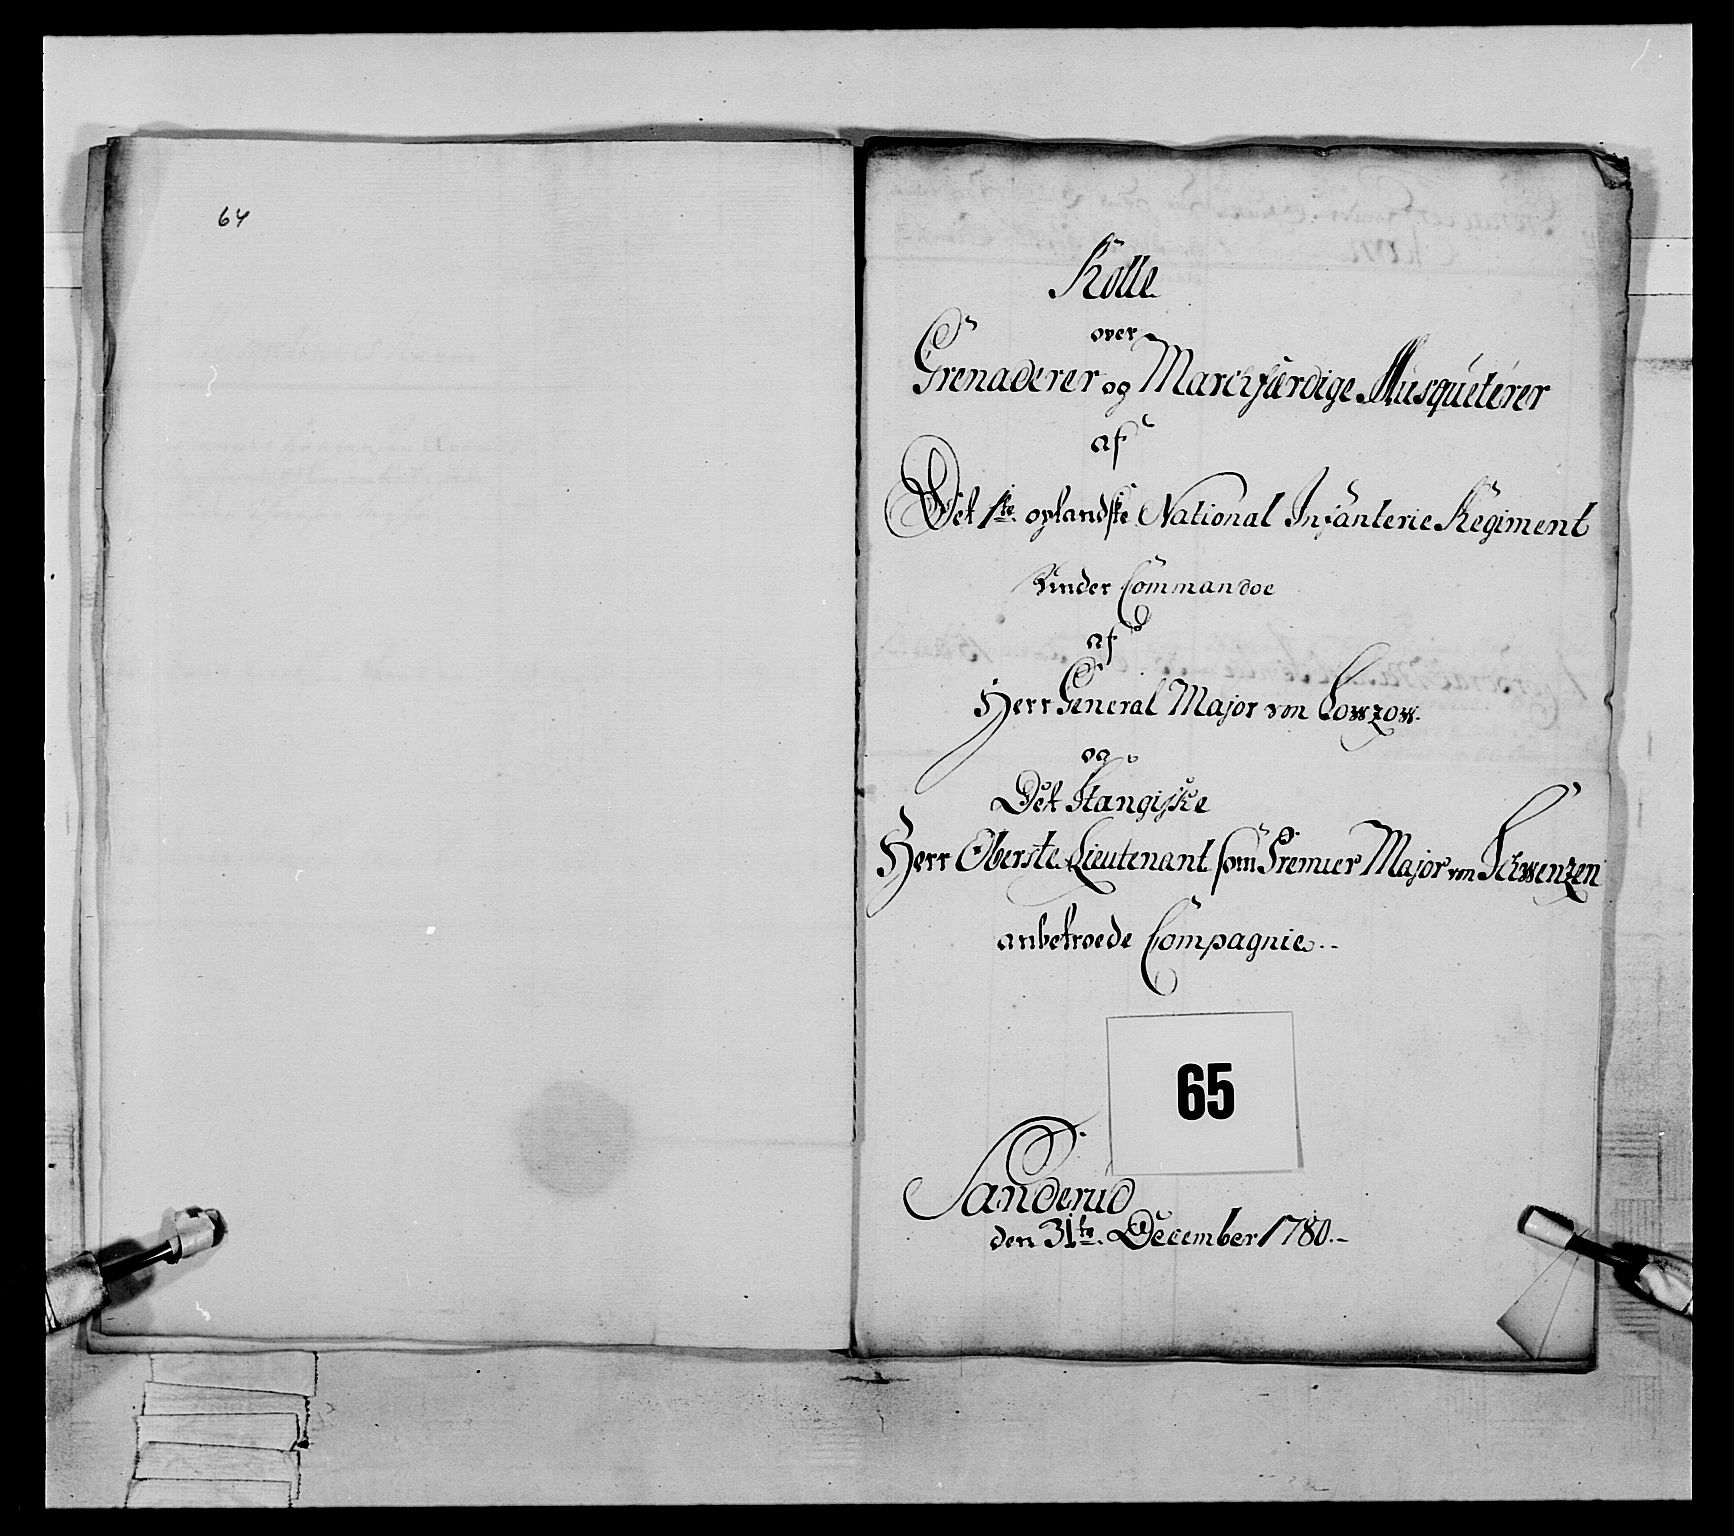 64
Rolle
over
Grenaderer og Marchfærdige Musqueterer
af
Det 1ste oplandske National Infanterie Regiment
under Commandoe
af
Herr General Major von Lowzow.
og
Det Stangiske
Herr Oberste Lieutenant som Premier Major von Schwenzen
anbetroede Compagnie..
65
Sanderud
den 31te. December 1780.-